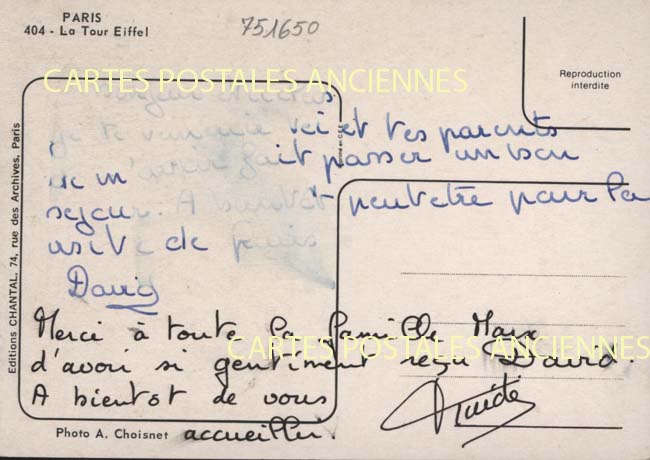 PARIS
404 - La Tour Eiffel
751650
CARTES POSTALES ANCIENNES
Reproduction
interdite
Editions CHANTAL, 74, rue des Archives, Paris
je te remercie toi et tes parents
de m'avoir fait passer un bon
sejour. A bientôt peut etre pour la
visite de Paris
David
Merci à toute la famille
d'avoir si gentiment reçu David.
CARTES POSTALES ANCIENNES
A bientot de vous
accueillir.
Photo A. Choisnet